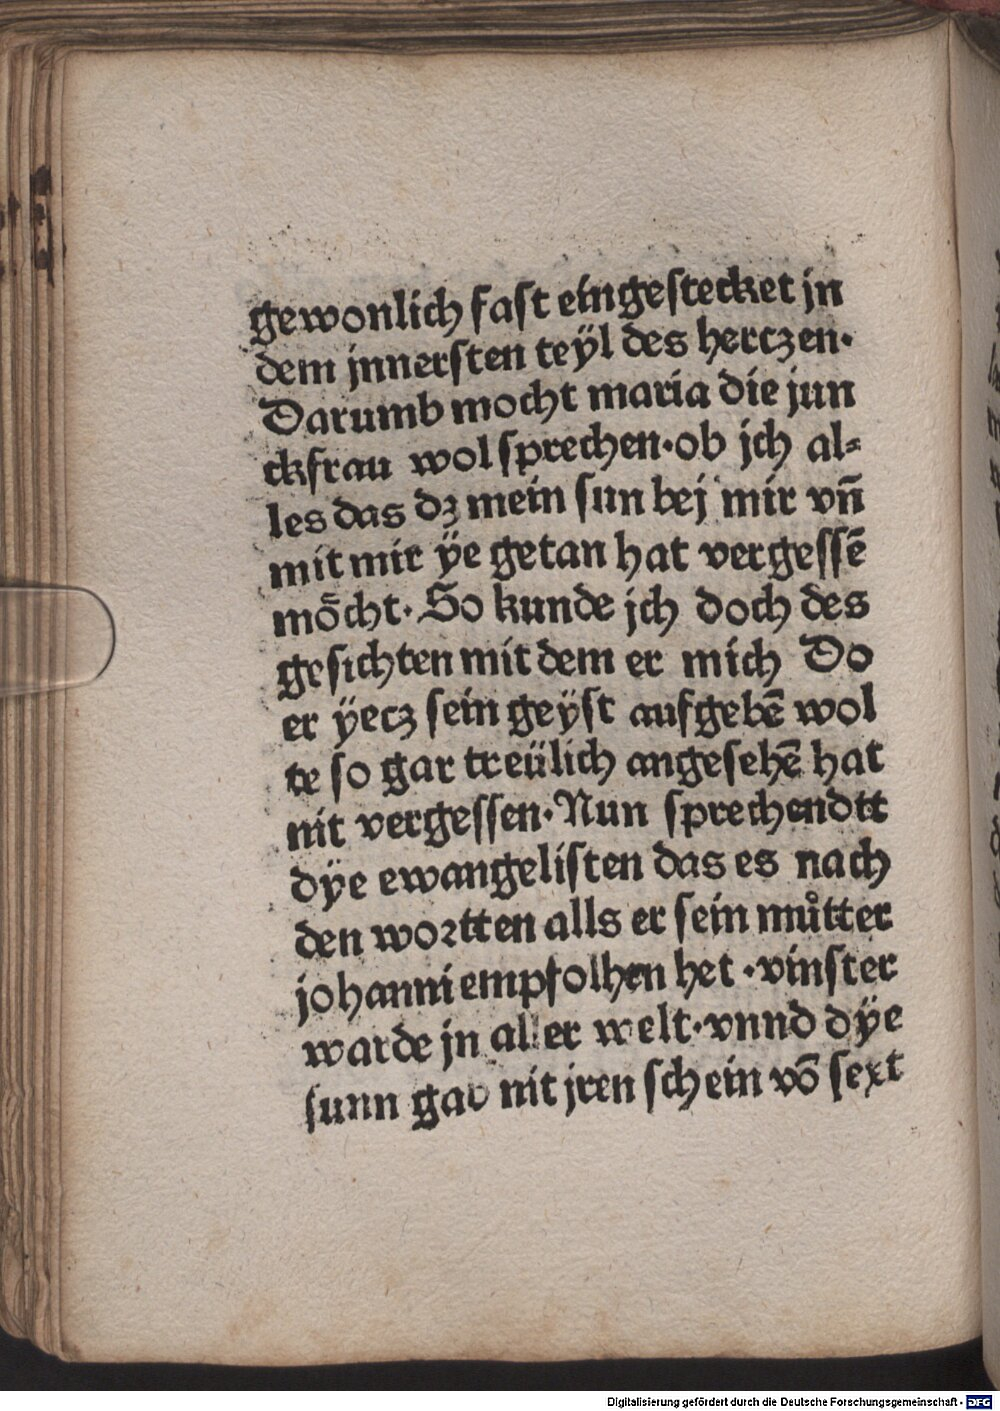 gewonlich fast eingestecket jn
dem jnnersten teÿl des herczen·
Darumb mocht maria die jun
ckfrau wol sprechen·ob jch al⸗
les das dz mein sun bej mir vn̄
mit mir ÿe getan hat vergessē
moͤcht· So kunde jch doch des
gesichten mit dem er mich Do
er ÿecz sein geÿst aufgebē wol
te so gar treülich angesehē hat
nit vergessen·Nun sprechendtt
dÿe ewangelisten das es nach
den wortten alls er sein muͦtter
johanni empfolhen het ·vinster
warde jn aller welt·vnnd dÿe
sunn gab nit jren schein vō sext
Digitalisierung gefördert durch die Deutsche Forschungsgemeinschaft - DFG